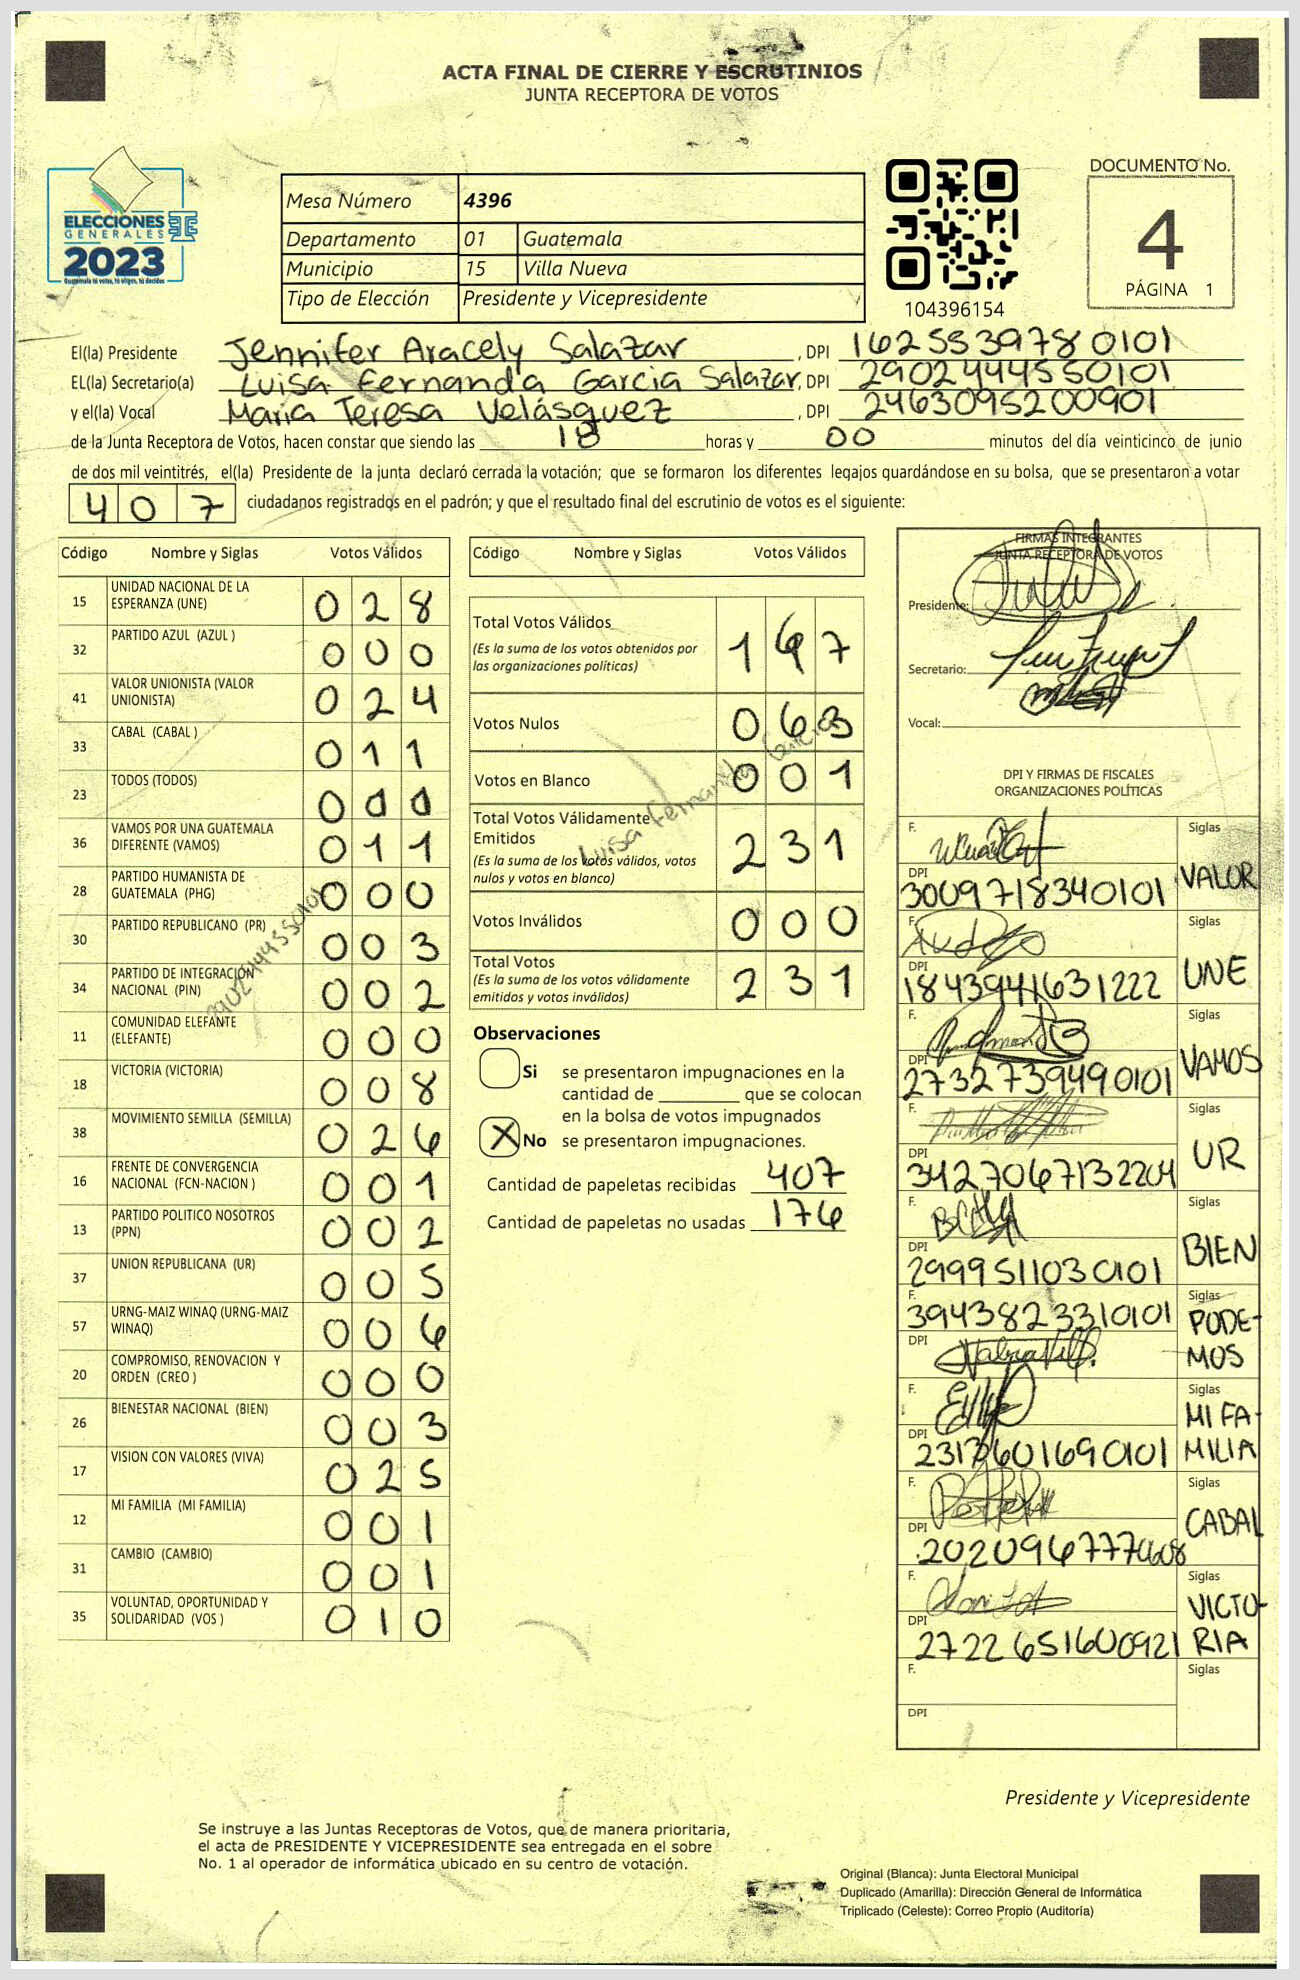 ACTA FINAL DE CIERRE Y ESCRUTINIOS
JUNTA RECEPTORA DE VOTOS
ELECCIONES
GENERALES
2023
Guatemala tú votas, tú eliges, tú decides
Mesa Número 4396
Departamento 01 Guatemala
Municipio 15 Villa Nueva
Tipo de Elección Presidente y Vicepresidente
104396154
DOCUMENTO No.
4
PÁGINA 1
El(la) Presidente Jennifer Aracely Salazar, DPI 1625539780101
EL(la) Secretario(a) Luisa Fernanda Garcia Salazar, DPI 2902444550101
y el(la) Vocal Maria Teresa Velásquez, DPI 2463095200901
de la Junta Receptora de Votos, hacen constar que siendo las 18 horas y 00 minutos del día veinticinco de junio
de dos mil veintitrés, el(la) Presidente de la junta declaró cerrada la votación; que se formaron los diferentes legajos quardándose en su bolsa, que se presentaron a votar
407 ciudadanos registrados en el padrón; y que el resultado final del escrutinio de votos es el siguiente:
Código Nombre y Siglas Votos Válidos
15 UNIDAD NACIONAL DE LA ESPERANZA (UNE) 028
32 PARTIDO AZUL (AZUL ) 000
41 VALOR UNIONISTA (VALOR UNIONISTA) 024
33 CABAL (CABAL ) 011
23 TODOS (TODOS)
36 VAMOS POR UNA GUATEMALA DIFERENTE (VAMOS) 011
28 PARTIDO HUMANISTA DE GUATEMALA (PHG) 000
30 PARTIDO REPUBLICANO (PR) 003
34 PARTIDO DE INTEGRACIÓN NACIONAL (PIN) 002
11 COMUNIDAD ELEFANTE (ELEFANTE) 000
18 VICTORIA (VICTORIA) 008
38 MOVIMIENTO SEMILLA (SEMILLA) 026
16 FRENTE DE CONVERGENCIA NACIONAL (FCN-NACION ) 001
13 PARTIDO POLITICO NOSOTROS (PPN) 002
37 UNION REPUBLICANA (UR) 005
57 URNG-MAIZ WINAQ (URNG-MAIZ WINAQ) 006
20 COMPROMISO, RENOVACION Y ORDEN (CREO ) 000
26 BIENESTAR NACIONAL (BIEN) 003
17 VISION CON VALORES (VIVA) 025
12 MI FAMILIA (MI FAMILIA) 001
31 CAMBIO (CAMBIO) 001
35 VOLUNTAD, OPORTUNIDAD Y SOLIDARIDAD (VOS ) 010
2902444550101
Código Nombre y Siglas Votos Válidos
Total Votos Válidos 167
(Es la suma de los votos obtenidos por
las organizaciones políticas)
Votos Nulos 063
Votos en Blanco 001
Total Votos Válidamente
Emitidos 231
(Es la suma de los votos válidos, votos
nulos y votos en blanco)
Votos Inválidos 000
Total Votos 231
(Es la suma de los votos válidamente
emitidos y votos inválidos)
Luisa Fernanda Garcia
Observaciones
Si se presentaron impugnaciones en la
cantidad de ________ que se colocan
en la bolsa de votos impugnados
X No se presentaron impugnaciones.
Cantidad de papeletas recibidas 407
Cantidad de papeletas no usadas 176
FIRMAS INTEGRANTES
JUNTA RECEPTORA DE VOTOS
Presidente:
Secretario:
Vocal:
DPI Y FIRMAS DE FISCALES
ORGANIZACIONES POLÍTICAS
F. Siglas
DPI 3009718340101 VALOR
F. Siglas
DPI 1843941631222 UNE
F. Siglas
DPI 2732739490101 VAMOS
F. Siglas
DPI 3427067132204 UR
F. Siglas
DPI 2999511030101 BIEN
F. 3943823310101 Siglas
DPI PODE-
MOS
F. Siglas
MI FA-
DPI MILIA
F. Siglas
DPI CABAL
F. Siglas
VICTO-
DPI 2722651600921 RIA
F. Siglas
DPI
Presidente y Vicepresidente
Se instruye a las Juntas Receptoras de Votos, que de manera prioritaria,
el acta de PRESIDENTE Y VICEPRESIDENTE sea entregada en el sobre
No. 1 al operador de informática ubicado en su centro de votación.
Original (Blanca): Junta Electoral Municipal
Duplicado (Amarilla): Dirección General de Informática
Triplicado (Celeste): Correo Propio (Auditoría)